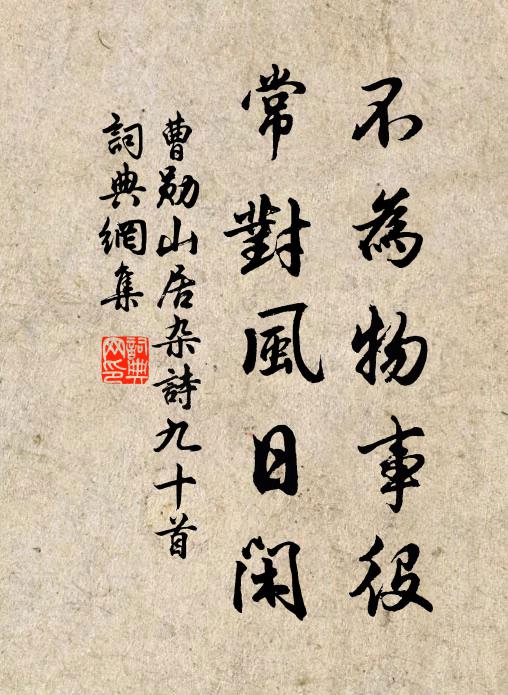 不為物事役
常對風日閑
曹勛山居杂詩九十首
詞典網集
詞典網印